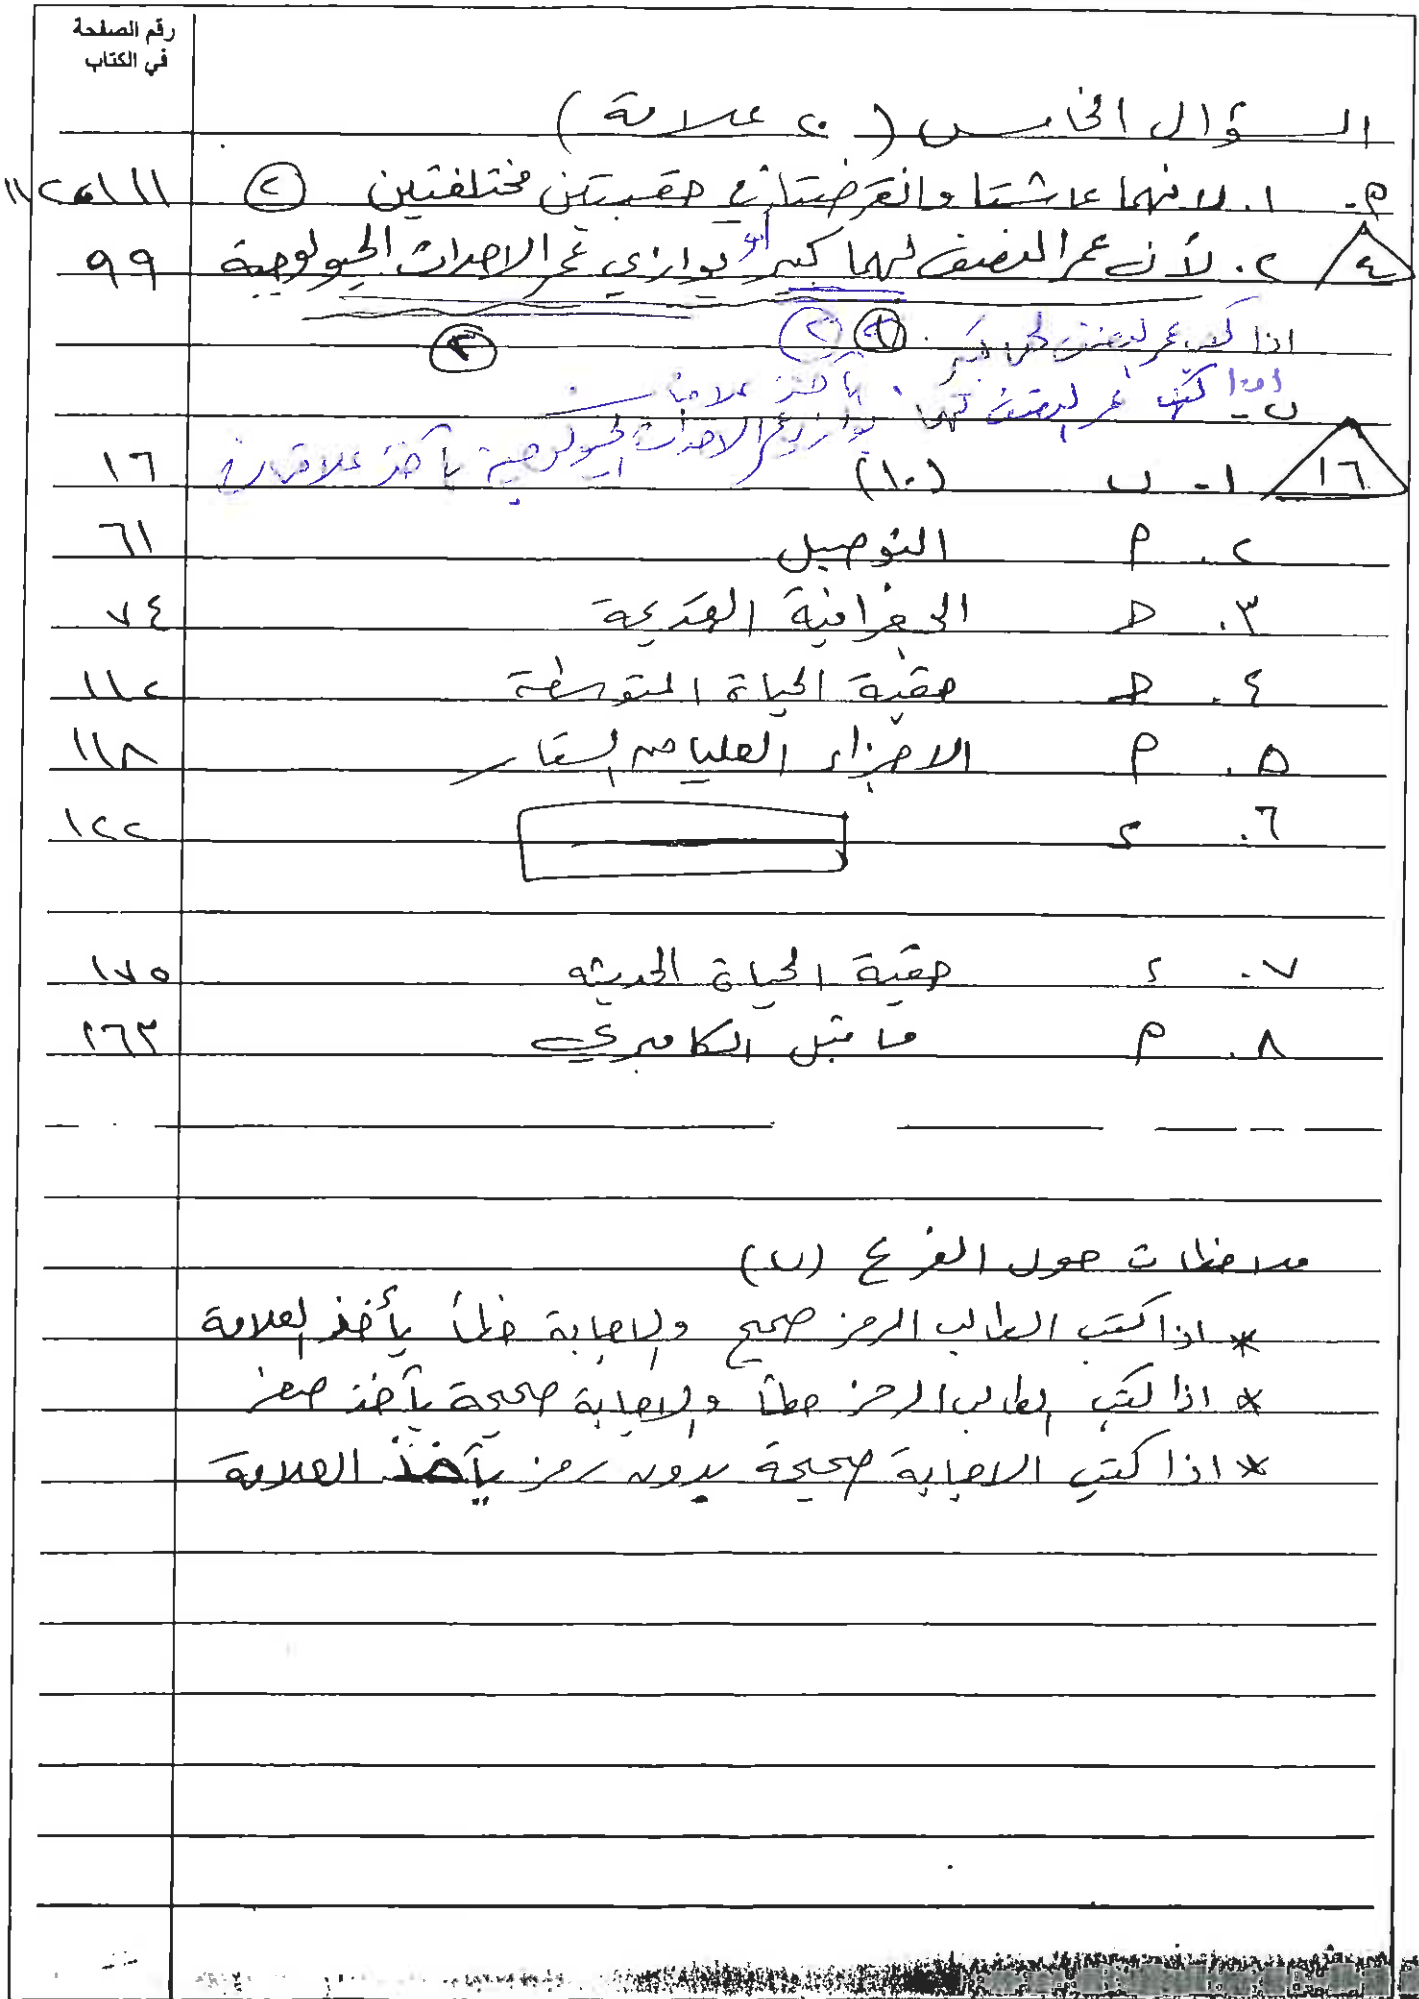 رقم الصفحة
في الكتاب
السؤال الخامس (٢٠ علامة)
م. ١. لانهما عاشتا وانقرضتا في حقبتين مختلفتين ② ١١١،١١٢
٤ ٢. لأن عمر النصف لهما كبير أو يوازي عمر الاحداث الجيولوجية ٩٩
اذا كتب عمر النصف لهما كبير ٢
٢
اذا كتب عمر النصف لهما يأخذ علامتان
يوازي عمر الاحداث الجيولوجية يأخذ علامتان
١٦ ١- ب (١٠) ١٦
٢. م التوصيل ٦١
٣. ح الجغرافية القديمة ٧٤
٤. ح حقبة الحياة المتوسطة ١١٢
٥. م الاجزاء العليا من الستار ١١٨
٦. د ١٢٢
٧. د حقبة الحياة الحديثه ١٧٥
٨. م ما قبل الكامبري ١٦٣
ملاحظات حول الفرع (ب)
* اذا كتب الطالب الرمز صحيح والاجابة خطأ يأخذ العلامة
* اذا كتب الطالب الرمز خطأ والاجابة صحيحة يأخذ صفر
* اذا كتب الاجابة صحيحة بدون رمز يأخذ العلامة